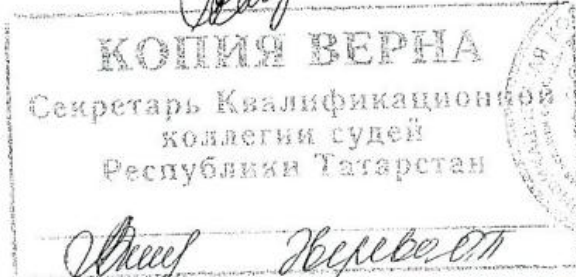 КОПИЯ ВЕРНА
Секретарь Квалификационной
коллегии судей
Республики Татарстан